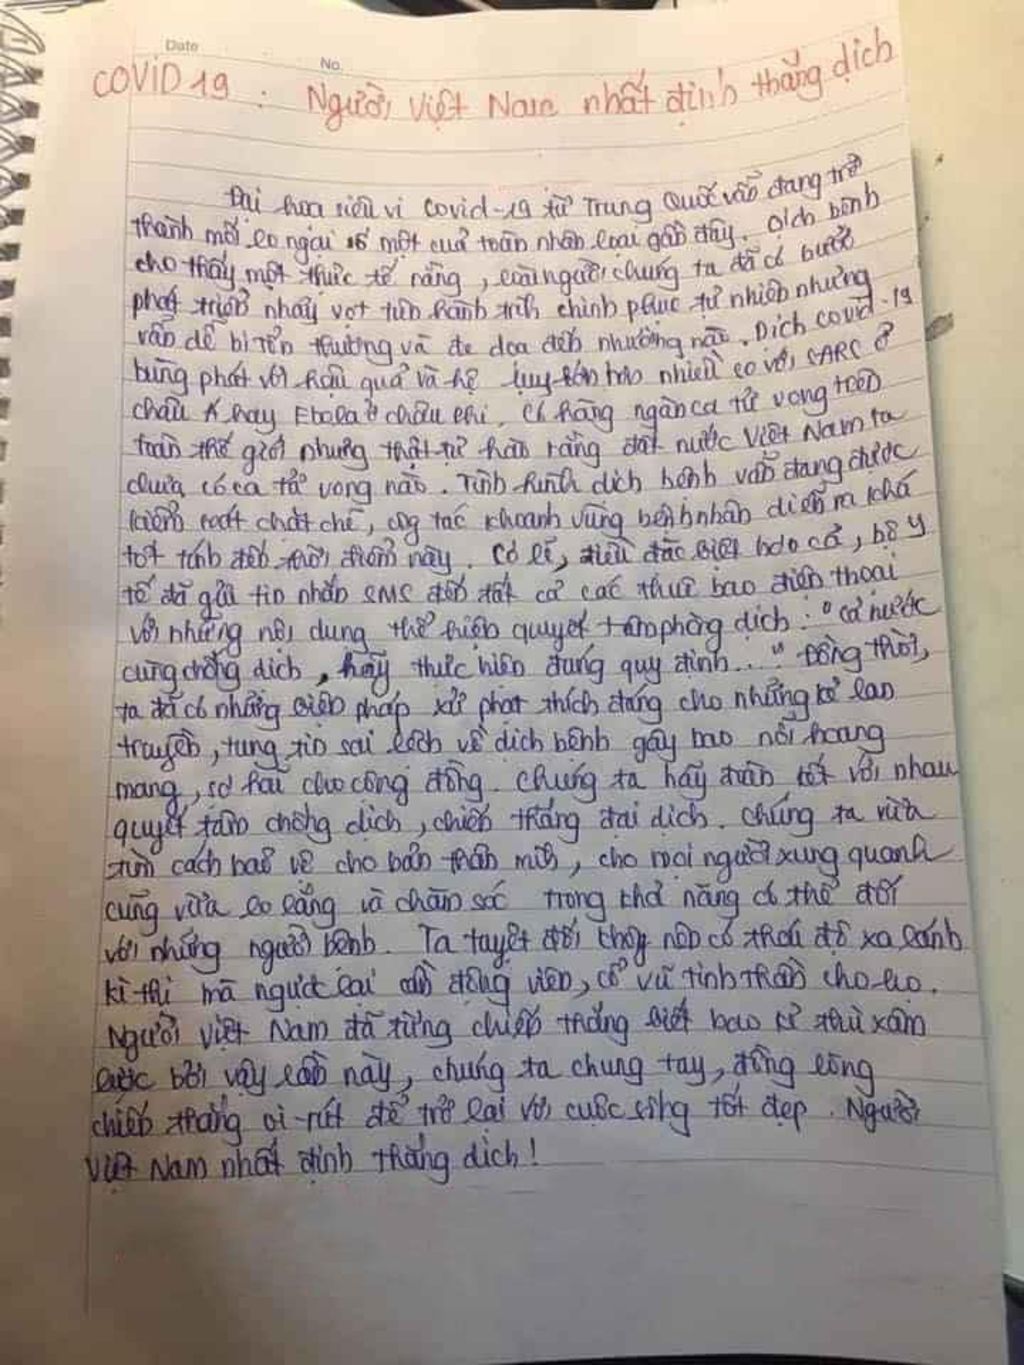 Date
No.
COVID 19 : Người Việt Nam nhất định thắng dịch
Đại họa siêu vi Covid-19 từ Trung Quốc vẫn đang trở
thành mối lo ngại số một của toàn nhân loại gần đây. Dịch bệnh
cho thấy một thực tế rằng, loài người chúng ta đã có bước
phát triển nhảy vọt trên hành trình chinh phục tự nhiên nhưng
vẫn dễ bị tổn thương và đe dọa đến nhường nào. Dịch covid-19
bùng phát với hậu quả và hệ lụy lớn hơn nhiều so với SARC ở
châu Á hay Ebola ở châu Phi. Có hàng ngàn ca tử vong trên
toàn thế giới nhưng thật tự hào rằng đất nước Việt Nam ta
chưa có ca tử vong nào. Tình hình dịch bệnh vẫn đang được
kiểm soát chặt chẽ, công tác khoanh vùng bệnh nhân diễn ra khá
tốt tính đến thời điểm này. Có lẽ, điều đặc biệt hơn cả, bộ y
tế đã gửi tin nhắn SMS đến tất cả các thuê bao điện thoại
với những nội dung thể hiện quyết tâm phòng dịch: "Cả nước
cùng chống dịch, hãy thực hiện đúng quy định..." Đồng thời,
ta đã có những biện pháp xử phạt thích đáng cho những kẻ lan
truyền, tung tin sai lệch về dịch bệnh gây bao nỗi hoang
mang, sợ hãi cho cộng đồng. Chúng ta hãy đoàn kết với nhau
quyết tâm chống dịch, chiến thắng đại dịch. Chúng ta vừa
tìm cách bảo vệ cho bản thân mình, cho mọi người xung quanh
cũng vừa lo lắng và chăm sóc trong khả năng có thể đối
với những người bệnh. Ta tuyệt đối không nên có thái độ xa lánh
kì thị mà ngược lại cần động viên, cổ vũ tinh thần cho họ.
Người Việt Nam đã từng chiến thắng biết bao kẻ thù xâm
lược bởi vậy lần này, chúng ta chung tay, đồng lòng
chiến thắng vi-rút để trở lại với cuộc sống tốt đẹp. Người
Việt Nam nhất định thắng dịch!